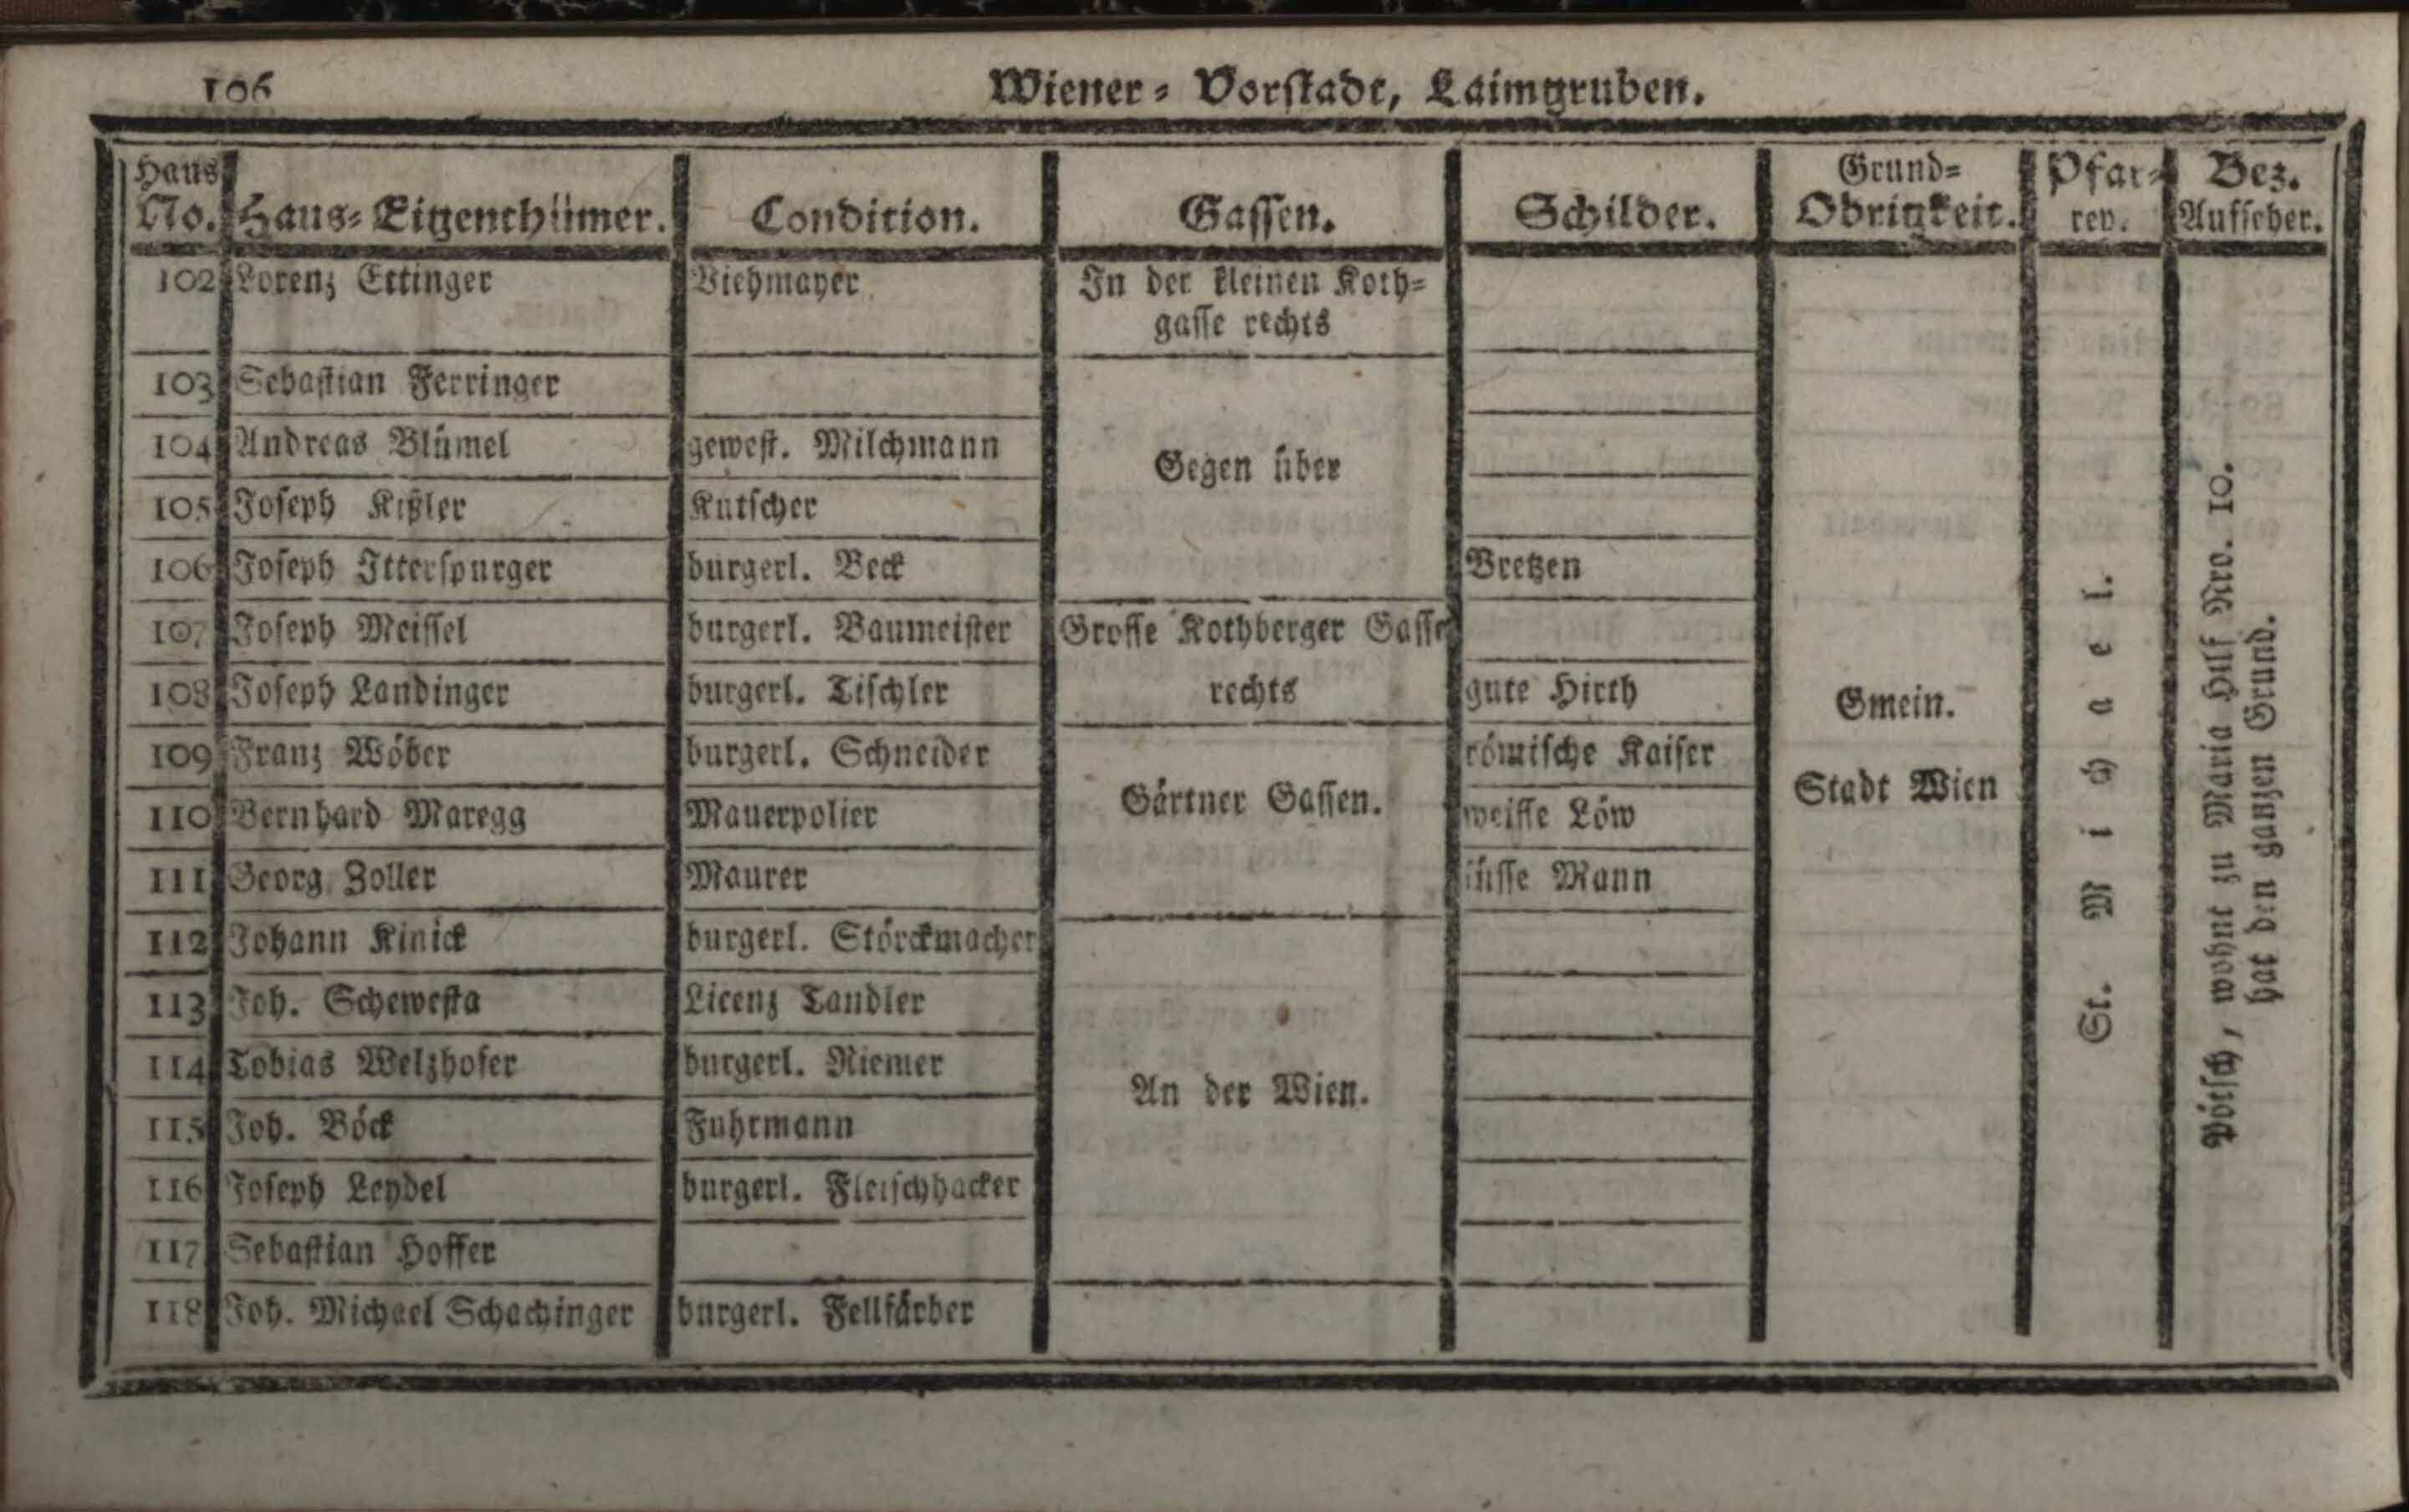 106
Wiener-Vorstadt, Laimgruben.
Haus No. Haus-Eigenthümer. Condition. Gassen. Schilder. Grund-Obrigkeit. Pfar-rey. Bez. Aufseher.
102 Lorenz Ettinger Viehmayer In der kleinen Koth-
gasse rechts
103 Sebastian Ferringer
104 Andreas Blümel gewest. Milchmann Gegen über
105 Joseph Kißler Kutscher
106 Joseph Itterspurger burgerl. Beck Bretzen
107 Joseph Meissel burgerl. Baumeister Grosse Kothberger Gasse
108 Joseph Landinger burgerl. Tischler rechts gute Hirth Gmein.
109 Franz Wöber burgerl. Schneider römische Kaiser
110 Bernhard Maregg Mauerpolier Gärtner Gassen. weisse Löw Stadt Wien
111 Georg Zoller Maurer süsse Mann
112 Johann Kinick burgerl. Störckmacher
113 Joh. Schewesta Licenz Tandler
114 Tobias Welzhofer burgerl. Riemer An der Wien.
115 Joh. Böck Fuhrmann
116 Joseph Leydel burgerl. Fleischhacker
117 Sebastian Hoffer
118 Joh. Michael Schachinger burgerl. Fellfärber
St. Michael.
Pötsch, wohnt zu Maria Hilf Nro. 10.
hat den ganzen Grund.